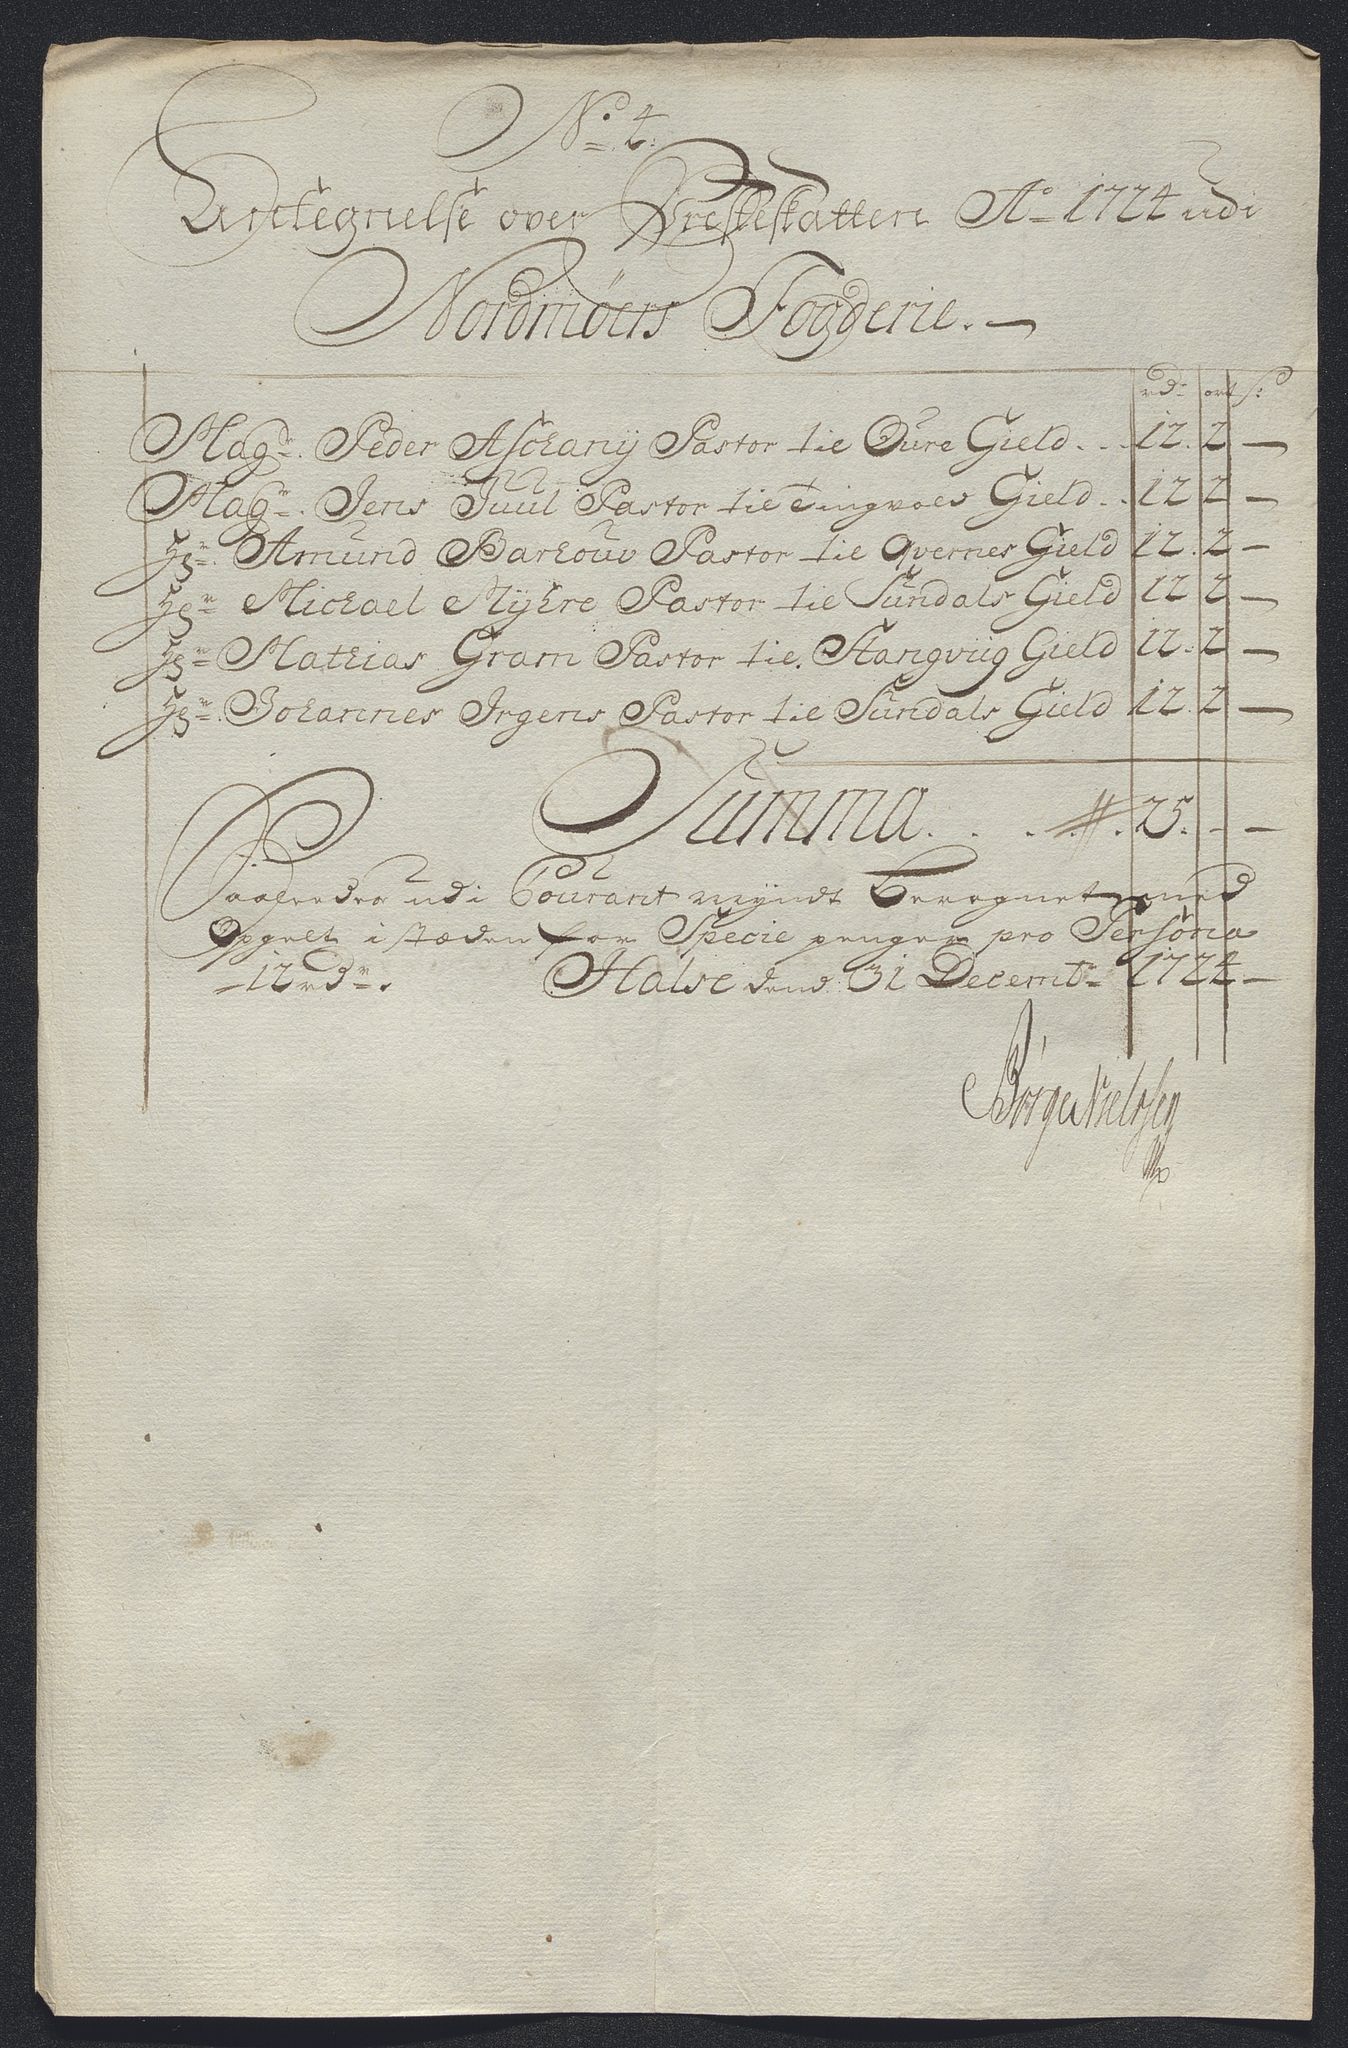 No 4.
Antegnelse over Præsteskatten Ao 1724 udi
Nordmøers Fogderie.
rdr ort s:
Magr. Peder Aschany Pastor til Oure Gield 12. 2 —
Magr. Jens Juul Pastor til Tingvoes Gield 12 2 —
Hr. Amund Barhouv Pastor til Qvernes Gield 12. 2 —
Hr Michael Myhre Pastor til Sundals Gield 12 2 —
Hr Mathias Gram Pastor til Stangviig Gield 12. 2 —
Hr. Johannes Irgens Pastor til Sundals Gield 12. 2 —
Summa 75. - -
Saaledes udi Courant myndt beregnet med
Opgelt i stæden for Specie penger pro Persona
12 rdr. Halse dend 31 Decembr 1724 —
Børge Nielssen